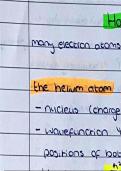 Ho
many electron atoms
the helium atom
- nucleus (charge
- wavefunction
positions of bot